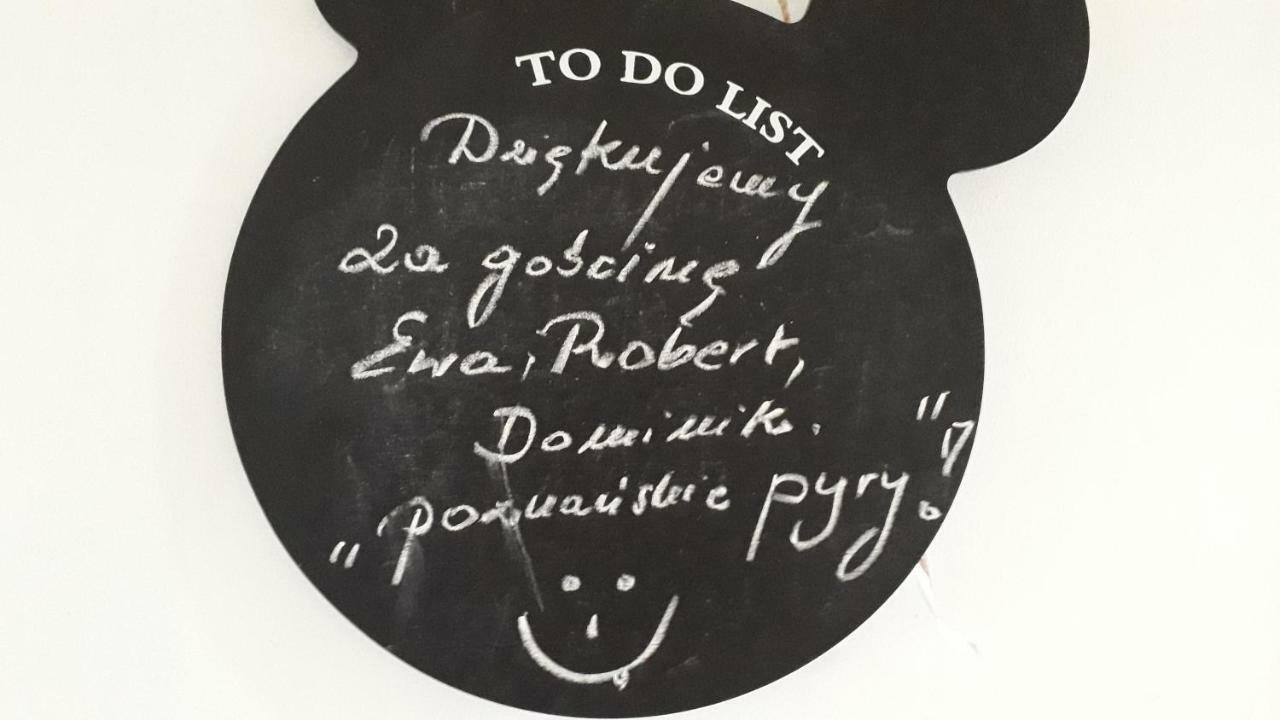 TO DO LIST
Dziękujemy
za gościnę
Ewa, Robert,
Dominik.
„poznańskie pyry"!